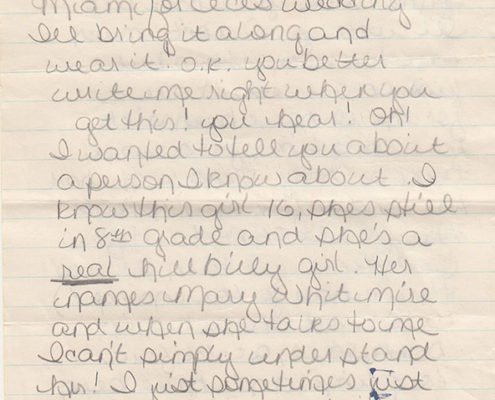 Miami for Cece's wedding
I'll bring it along and
wear it. O.K. you better
write me right when you
get this! you hear! Oh!
I wanted to tell you about
a person I know about. I
know this girl 16, shes still
in 8th grade and she's a
real hill billy girl. Her
names Mary Whitmire
and when she talks to me
I can't simply understand
her! I just sometimes just